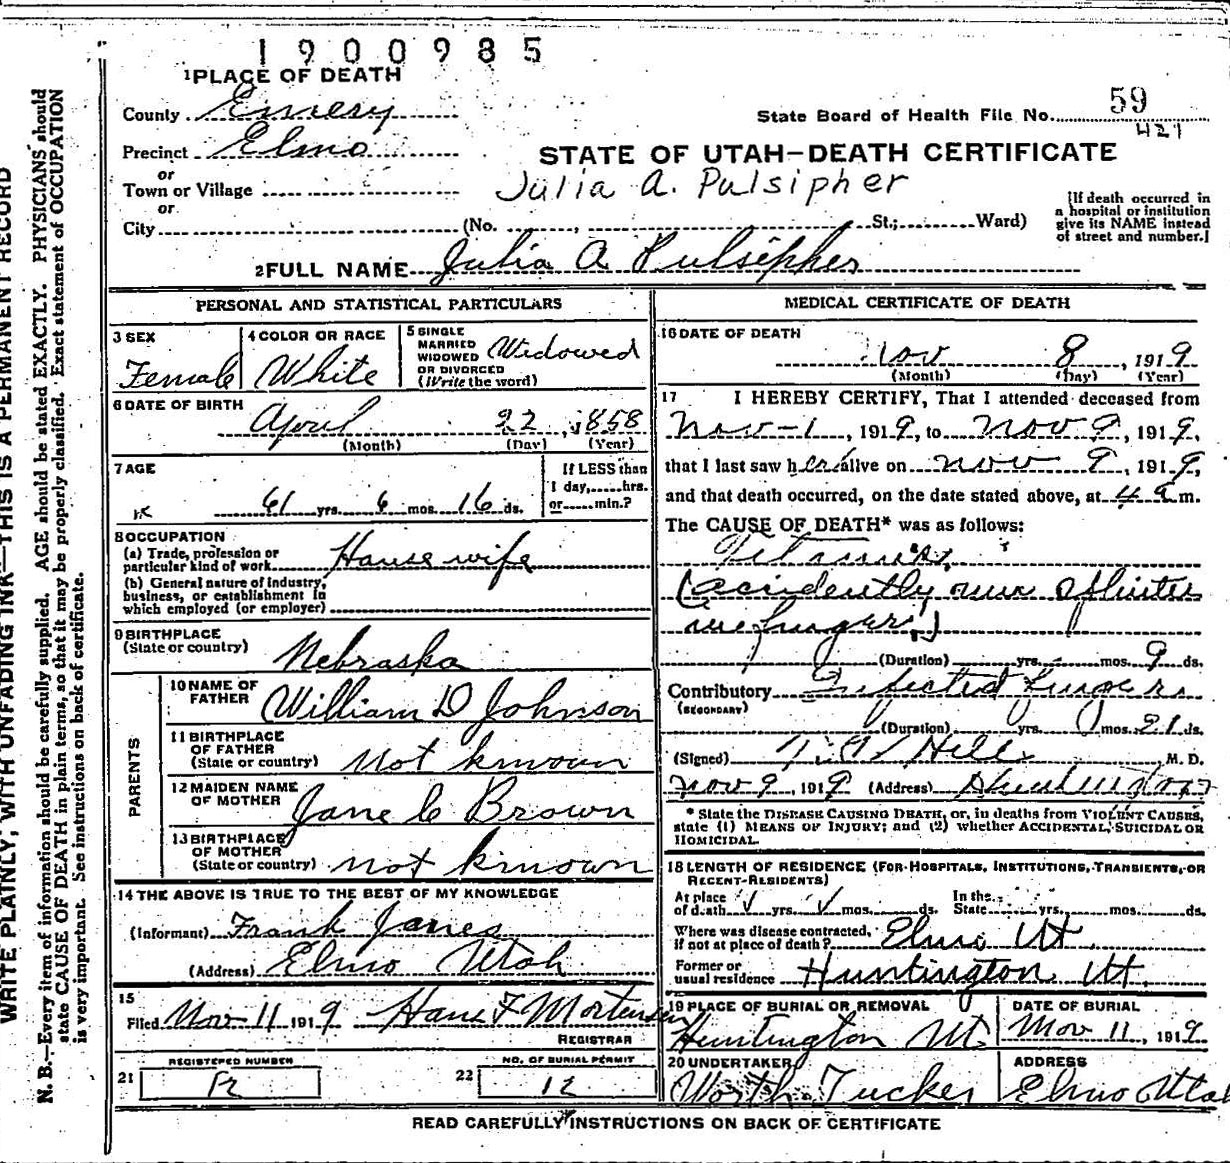 1900985
1 PLACE OF DEATH
County Emery
State Board of Health File No. 59
421
Precinct Elmo
STATE OF UTAH—DEATH CERTIFICATE
or
Town or Village
Julia A. Pulsipher
or
City (No. , St.; Ward)
[If death occurred in
a hospital or institution
give its NAME instead
of street and number.]
2 FULL NAME Julia A Pulsipher
PERSONAL AND STATISTICAL PARTICULARS
3 SEX
Female
4 COLOR OR RACE
White
5 SINGLE
MARRIED
WIDOWED
OR DIVORCED
(Write the word)
Widowed
6 DATE OF BIRTH
April 22, 1858
(Month) (Day) (Year)
7 AGE
61 yrs. 6 mos. 16 ds.
If LESS than
1 day, hrs.
or min.?
8 OCCUPATION
(a) Trade, profession or
particular kind of work House wife
(b) General nature of industry,
business, or establishment in
which employed (or employer)
9 BIRTHPLACE
(State or country)
Nebraska
PARENTS
10 NAME OF
FATHER
William D Johnson
11 BIRTHPLACE
OF FATHER
(State or country) not known
12 MAIDEN NAME
OF MOTHER
Jane C Brown
13 BIRTHPLACE
OF MOTHER
(State or country) not known
14 THE ABOVE IS TRUE TO THE BEST OF MY KNOWLEDGE
(Informant) Frank Janes
(Address) Elmo Utah
15
Filed Nov 11 1919 Hans F Mortensen
REGISTRAR
REGISTERED NUMBER
21
NO. OF BURIAL PERMIT
22 12
MEDICAL CERTIFICATE OF DEATH
16 DATE OF DEATH
Nov 8, 1919
(Month) (Day) (Year)
17 I HEREBY CERTIFY, That I attended deceased from
Nov-1, 1919, to Nov 9, 1919,
that I last saw her alive on Nov 9, 1919,
and that death occurred, on the date stated above, at 4 a m.
The CAUSE OF DEATH* was as follows:
Tetanus,
(accidently run splinter
in finger)
(Duration) yrs. mos. 9 ds.
Contributory Infected fingers
(SECONDARY)
(Duration) yrs. mos. 21 ds.
(Signed) Hill M. D.
Nov 9, 1919 (Address) Huntington
* State the DISEASE CAUSING DEATH, or, in deaths from VIOLENT CAUSES,
state (1) MEANS OF INJURY; and (2) whether ACCIDENTAL, SUICIDAL OR
HOMICIDAL.
18 LENGTH OF RESIDENCE (FOR HOSPITALS, INSTITUTIONS, TRANSIENTS, OR
RECENT RESIDENTS)
At place
of death yrs. mos. ds.
In the
State yrs. mos. ds.
Where was disease contracted,
if not at place of death? Elmo Ut
Former or
usual residence Huntington Ut.
19 PLACE OF BURIAL OR REMOVAL
Huntington Ut
DATE OF BURIAL
Nov 11, 1919
20 UNDERTAKER
Worth Tucker
ADDRESS
Elmo Utah
READ CAREFULLY INSTRUCTIONS ON BACK OF CERTIFICATE
WRITE PLAINLY, WITH UNFADING INK—THIS IS A PERMANENT RECORD
N. B.—Every item of information should be carefully supplied. AGE should be stated EXACTLY. PHYSICIANS should
state CAUSE OF DEATH in plain terms, so that it may be properly classified. Exact statement of OCCUPATION
is very important. See instructions on back of certificate.